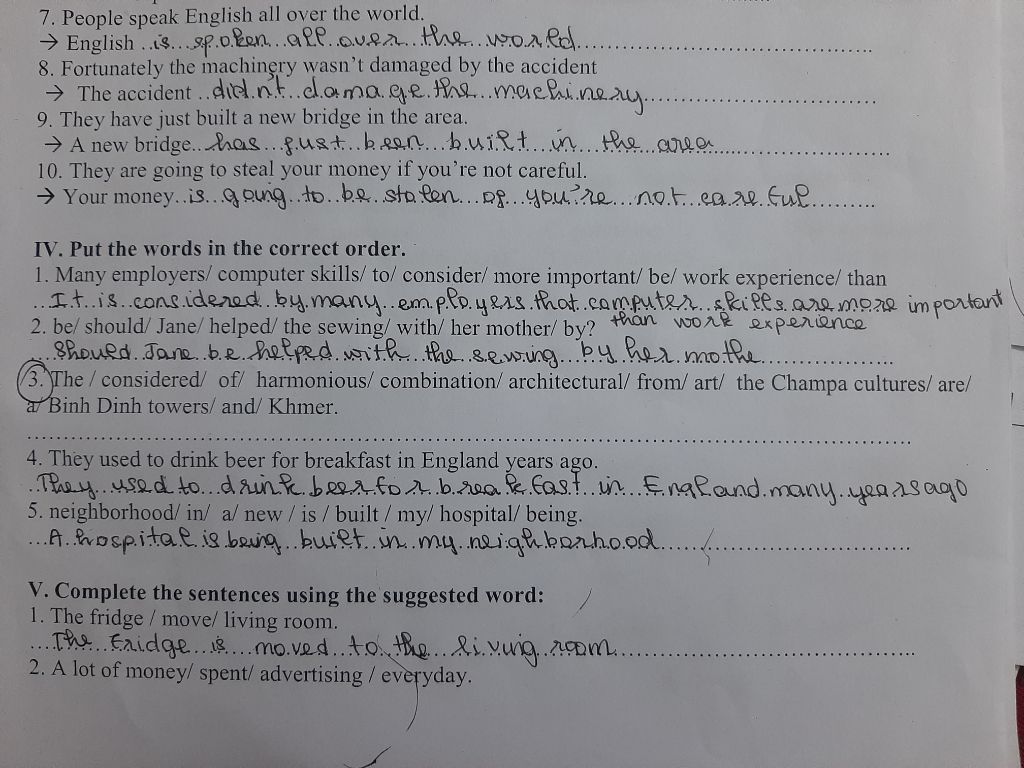 7. People speak English all over the world.
→ English is spoken all over the world
8. Fortunately the machinery wasn't damaged by the accident
→ The accident didn't damage the machinery
9. They have just built a new bridge in the area.
→ A new bridge has just been built in the area
10. They are going to steal your money if you're not careful.
→ Your money is going to be stolen of you're not careful
IV. Put the words in the correct order.
1. Many employers/ computer skills/ to/ consider/ more important/ be/ work experience/ than
It is considered by many employers that computer skills are more important
than work experience
2. be/ should/ Jane/ helped/ the sewing/ with/ her mother/ by?
Should Jane be helped with the sewing by her mothe
3. The / considered/ of/ harmonious/ combination/ architectural/ from/ art/ the Champa cultures/ are/
a/ Binh Dinh towers/ and/ Khmer.
4. They used to drink beer for breakfast in England years ago.
They used to drink beer for breakfast in England many years ago
5. neighborhood/ in/ a/ new / is / built / my/ hospital/ being.
A hospital is being built in my neighborhood
V. Complete the sentences using the suggested word:
1. The fridge / move/ living room.
The fridge is moved to the living room
2. A lot of money/ spent/ advertising / everyday.